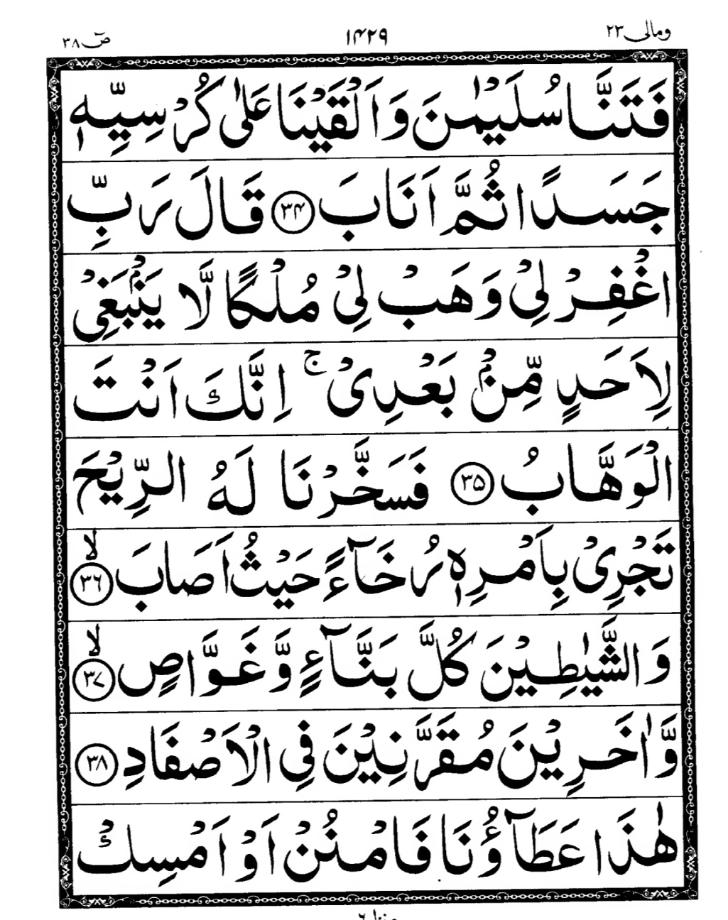 ومالی ۲۳ ۱۴۲۹ صٓ ۳۸
فَتَنَّا سُلَیْمٰنَ وَاَلْقَیْنَا عَلٰی كُرْسِیِّهٖ
جَسَدًا ثُمَّ اَنَابَ ۳۴ قَالَ رَبِّ
اغْفِرْ لِیْ وَهَبْ لِیْ مُلْكًا لَّا یَنْۢبَغِیْ
لِاَحَدٍ مِّنْۢ بَعْدِیْ ۚ اِنَّكَ اَنْتَ
الْوَهَّابُ ۳۵ فَسَخَّرْنَا لَهُ الرِّیْحَ
تَجْرِیْ بِاَمْرِهٖ رُخَآءً حَیْثُ اَصَابَ ۙ ۳۶
وَالشَّیٰطِیْنَ كُلَّ بَنَّآءٍ وَّغَوَّاصٍ ۙ ۳۷
وَّاٰخَرِیْنَ مُقَرَّنِیْنَ فِی الْاَصْفَادِ ۳۸
هٰذَا عَطَآؤُنَا فَامْنُنْ اَوْ اَمْسِكْ